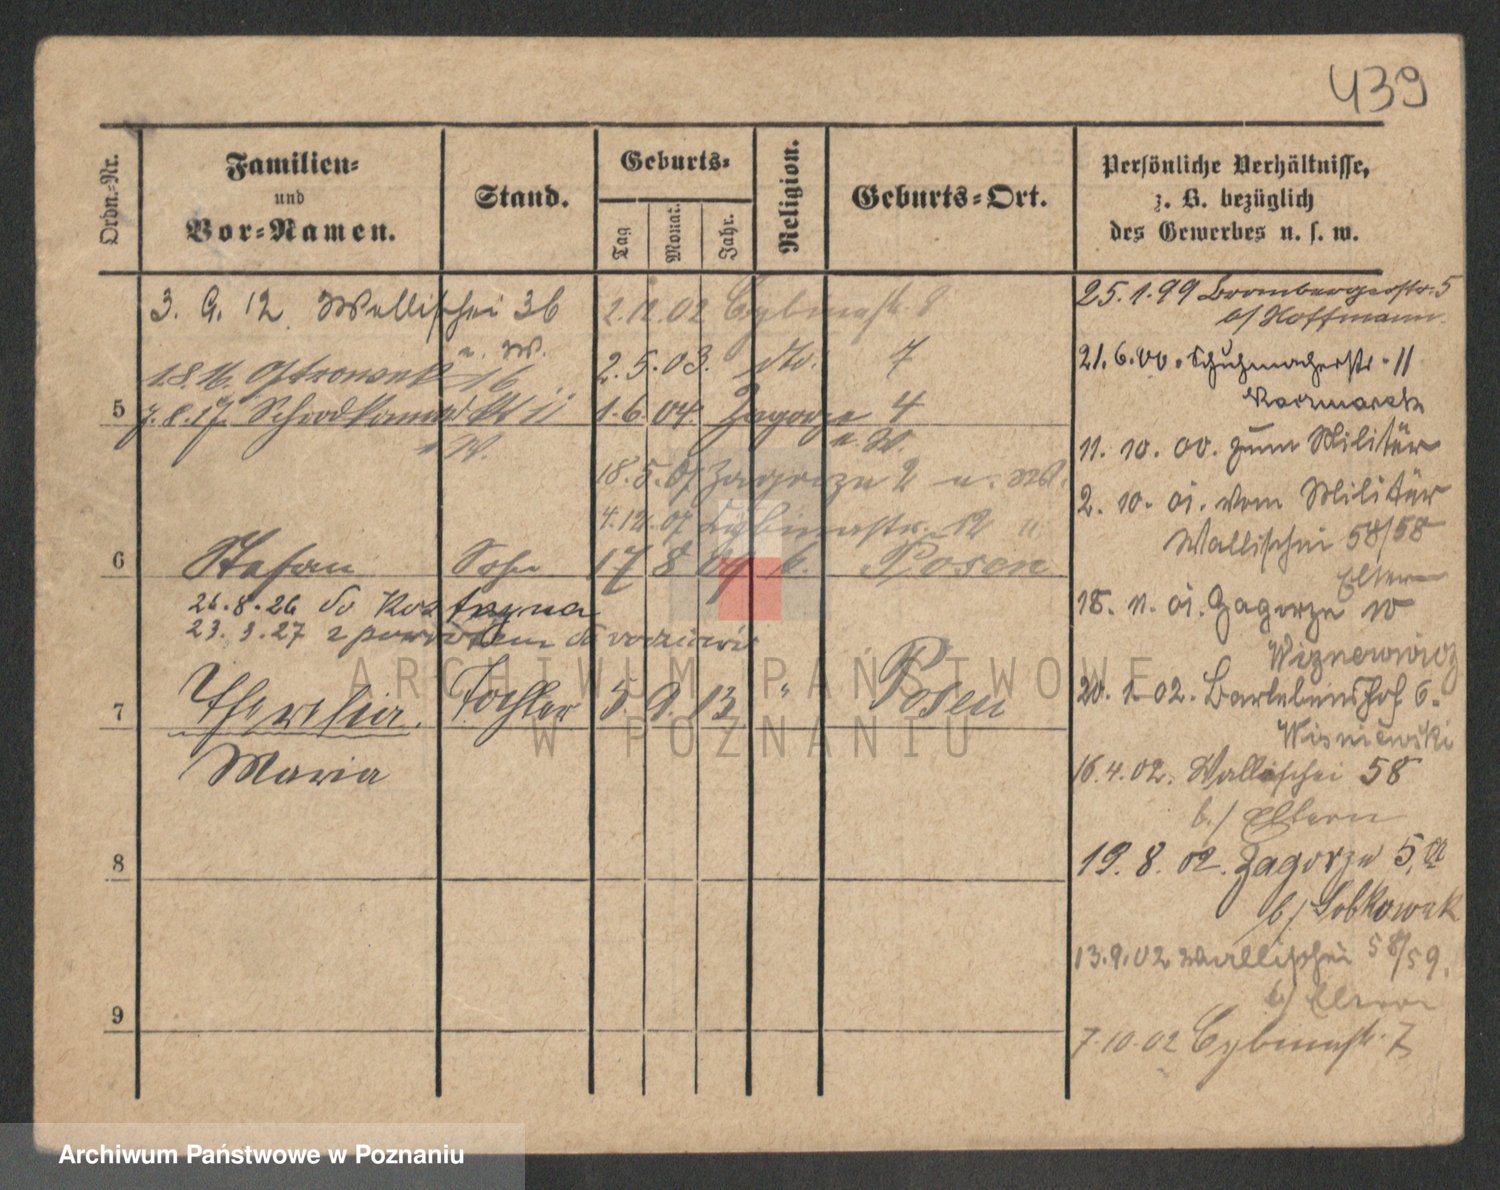 439
Ordn.-Nr.
Familien-
und
Vor-Namen.
Stand.
Geburts-
Tag
Monat.
Jahr.
Religion.
Geburts-Ort.
Persönliche Verhältnisse,
z. B. bezüglich
des Gewerbes u. s. w.
3. 9. 12 Wallischei 36
u. W.
18 16. Ostrowek 16
5
7. 8. 17. Schrodkamarkt 11
W.
2. 11. 02 Cybinastr. 8
2. 5. 03. dto. 7
1. 6. 04. Zagorze 4
u. W.
18. 5. 07 Zagorze 2 u.
4. 12. 07 Cybinastr. 12 u
6 Stefan Sohn 17 8 09 k. Posen
26.8.26 do Kostrzyna
23. 3. 27 z powrotem do rodziców
7 Theresia. Tochter 5 9. 13 " Posen
Maria
8
9
25. 1. 99 Brombergerstr. 5
b/ Hoffmann.
21. 6. 00. Schuhmacherstr. 11
Kaczmarek
11. 10. 00. zum Militär
2. 10. 01. vom Militär
Wallischei 58/58
Eltern
18. 11. 01. Zagorze 10
20. 1. 02. Bartelsinshof 6.
Wisniewski
16. 4. 02. Wallischei 58
b./ Eltern
19. 8. 02. Zagorze 5,
b/ Sobkowiak
13. 9. 02 Wallischei 58/59.
b/ Eltern
7. 10. 02 Cybinastr. 7
ARCHIWUM PAŃSTWOWE
W POZNANIU
Archiwum Państwowe w Poznaniu